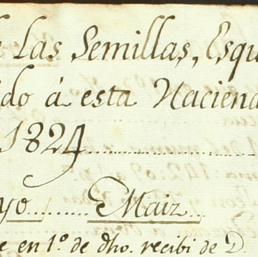 e las Semillas, Esqu
do á esta Hacien
1824
yo Maiz
e en 1.º de dho. recibi de D.